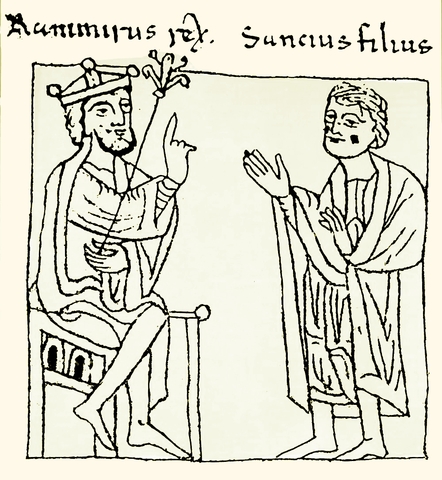 Ranimirus rex. Sancius filius